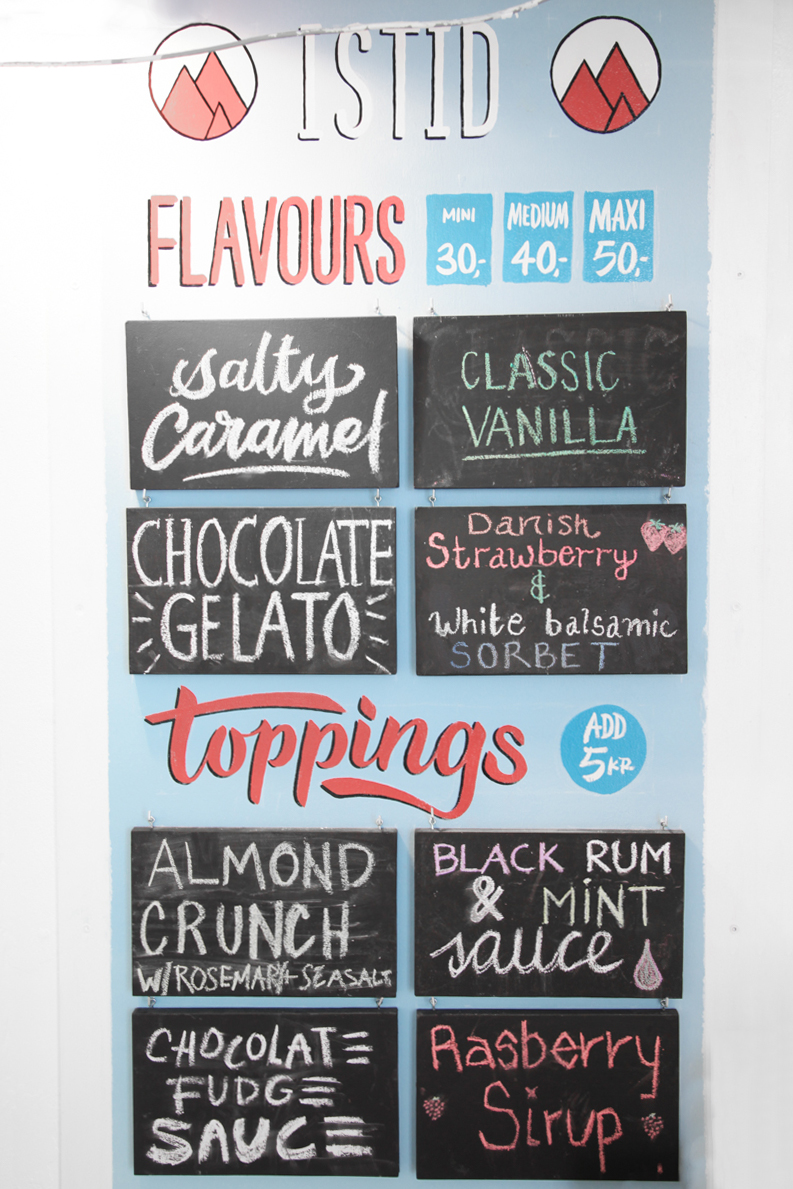 ISTID
FLAVOURS
MINI
30,-
MEDIUM
40,-
MAXI
50,-
Salty
Caramel
CLASSIC
VANILLA
CHOCOLATE
GELATO
Danish
Strawberry
&
White balsamic
SORBET
toppings
ADD
5KR
ALMOND
CRUNCH
W/ROSEMARY+SEASALT
BLACK RUM
& MINT
sauce
CHOCOLATE
FUDGE
SAUCE
Rasberry
Sirup